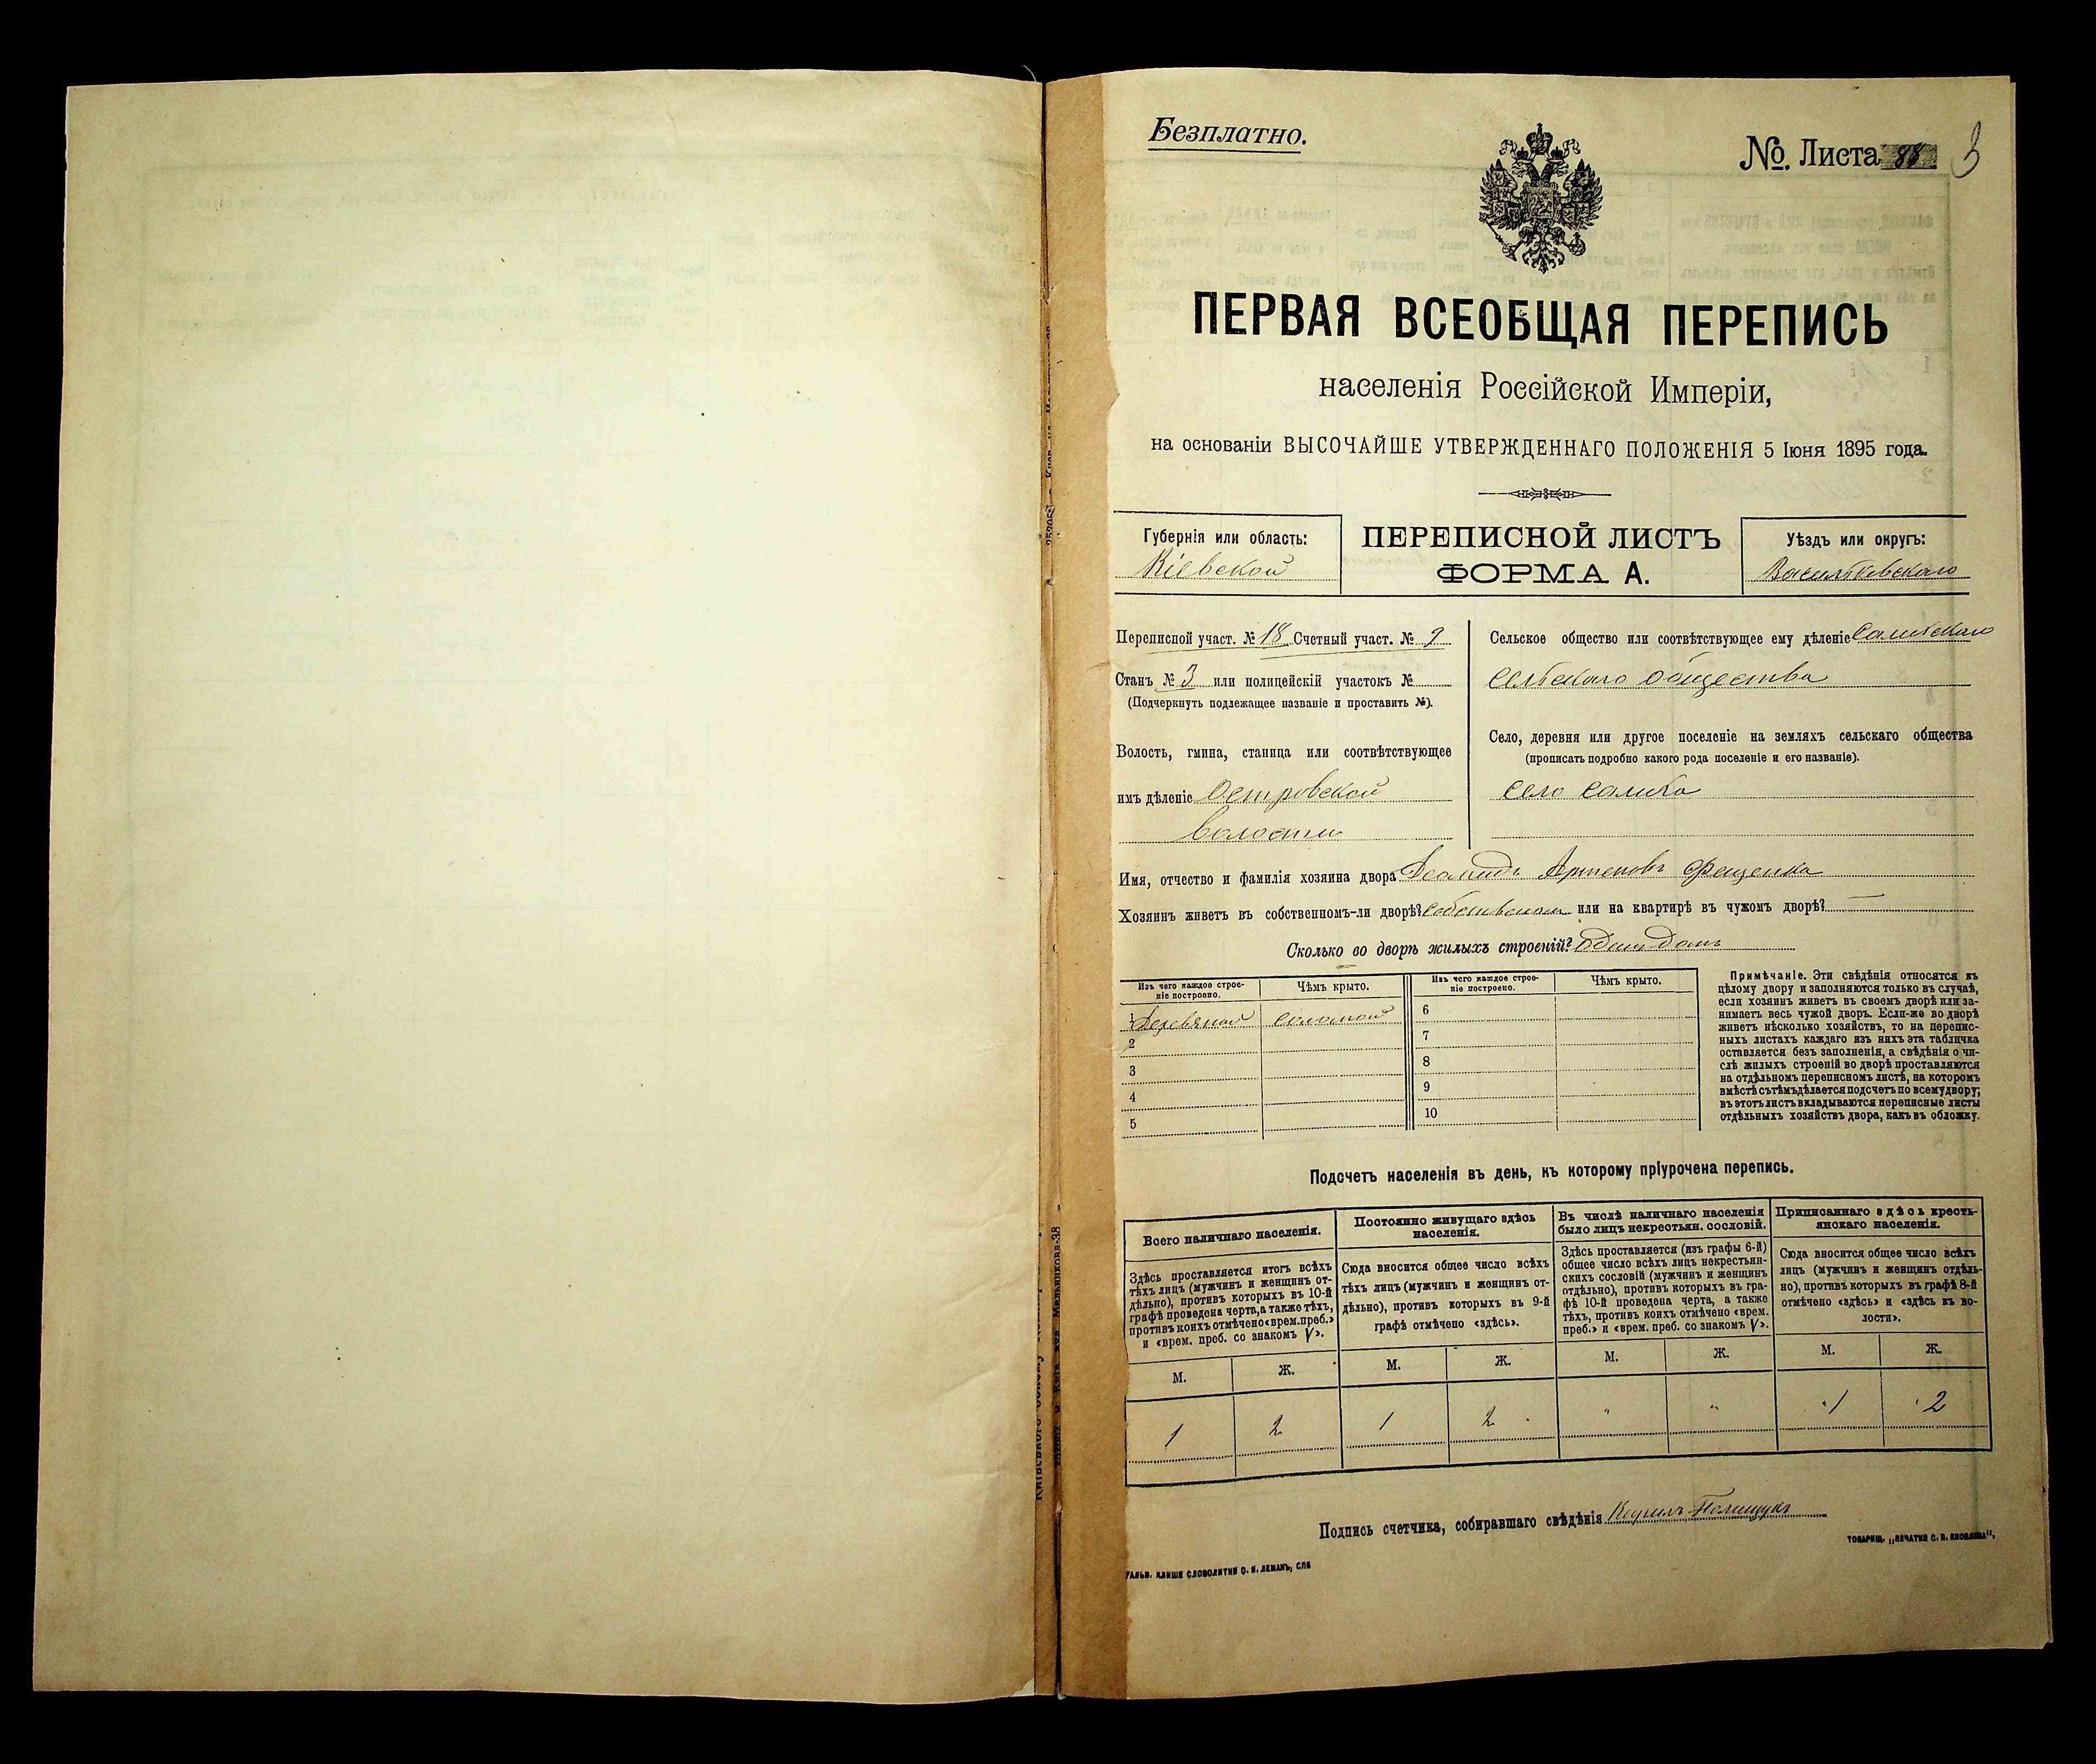 Безплатно.
№. Листа 88 3
ПЕРВАЯ ВСЕОБЩАЯ ПЕРЕПИСЬ
населенія Россійской Имперіи,
на основаніи ВЫСОЧАЙШЕ УТВЕРЖДЕННАГО ПОЛОЖЕНІЯ 5 Іюня 1895 года.
Губернія или область:
Кіевской
ПЕРЕПИСНОЙ ЛИСТЪ
ФОРМА А.
Уѣздъ или округъ:
Васильковскаго
Переписной участ. № 18 Счетный участ. № 9
Станъ № 3 или полицейскій участокъ №
(Подчеркнуть подлежащее названіе и проставить №).
Волость, гмина, станица или соотвѣтствующее
имъ дѣленіе Островской
Волости
Сельское общество или соотвѣтствующее ему дѣленіе
Сельскаго общества
Село, деревня или другое поселеніе на земляхъ сельскаго общества
(прописать подробно какого рода поселеніе и его названіе).
Село
Имя, отчество и фамилія хозяина двора Фещенка
Хозяинъ живетъ въ собственномъ-ли дворѣ? собственом или на квартирѣ въ чужомъ дворѣ? —
Сколько во дворѣ жилыхъ строеній? один домъ
Изъ чего каждое строе-
ніе построено.
Чѣмъ крыто.
Изъ чего каждое строе-
ніе построено.
Чѣмъ крыто.
1 Деревяной соломой
2
3
4
5
6
7
8
9
10
Примѣчаніе. Эти свѣдѣнія относятся къ
цѣлому двору и заполняются только въ случаѣ,
если хозяинъ живетъ въ своемъ дворѣ или за-
нимаетъ весь чужой дворъ. Если-же во дворѣ
живетъ нѣсколько хозяйствъ, то на перепис-
ныхъ листахъ каждаго изъ нихъ эта табличка
оставляется безъ заполненія, а свѣдѣнія о чи-
слѣ жилыхъ строеній во дворѣ проставляются
на отдѣльномъ переписномъ листѣ, на которомъ
вмѣстѣ съ тѣмъ дѣлается подсчетъ по всему двору;
въ этотъ листъ вкладываются переписные листы
отдѣльныхъ хозяйствъ двора, какъ въ обложку.
Подсчетъ населенія въ день, къ которому пріурочена перепись.
Всего наличнаго населенія.
Здѣсь проставляется итогъ всѣхъ
тѣхъ лицъ (мужчинъ и женщинъ от-
дѣльно), противъ которыхъ въ 10-й
графѣ проведена черта, а также тѣхъ,
противъ коихъ отмѣчено «врем. преб.»
и «врем. преб. со знакомъ V».
М. Ж.
1 2
Постоянно живущаго здѣсь
населенія.
Сюда вносится общее число всѣхъ
тѣхъ лицъ (мужчинъ и женщинъ от-
дѣльно), противъ которыхъ въ 9-й
графѣ отмѣчено «здѣсь».
М. Ж.
1 2
Въ числѣ наличнаго населенія
было лицъ некрестьян. сословій.
Здѣсь проставляется (изъ графы 6-й)
общее число всѣхъ лицъ некрестьян-
скихъ сословій (мужчинъ и женщинъ
отдѣльно), противъ которыхъ въ гра-
фѣ 10-й проведена черта, а также
тѣхъ, противъ коихъ отмѣчено «врем.
преб.» и «врем. преб. со знакомъ V».
М. Ж.
" "
Приписаннаго здѣсь кресть-
янскаго населенія.
Сюда вносится общее число всѣхъ
лицъ (мужчинъ и женщинъ отдѣль-
но), противъ которыхъ въ графѣ 8-й
отмѣчено «здѣсь» и «здѣсь къ во-
лости».
М. Ж.
1 2
Подпись счетчика, собиравшаго свѣдѣнія Кирилъ Полищукъ
ГАЛЬВ. КЛИШЕ СЛОВОЛИТНИ О. И. ЛЕМАНЪ, СПБ
ТОВАРИЩ. „ПЕЧАТНЯ С. П. ЯКОВЛЕВА“,